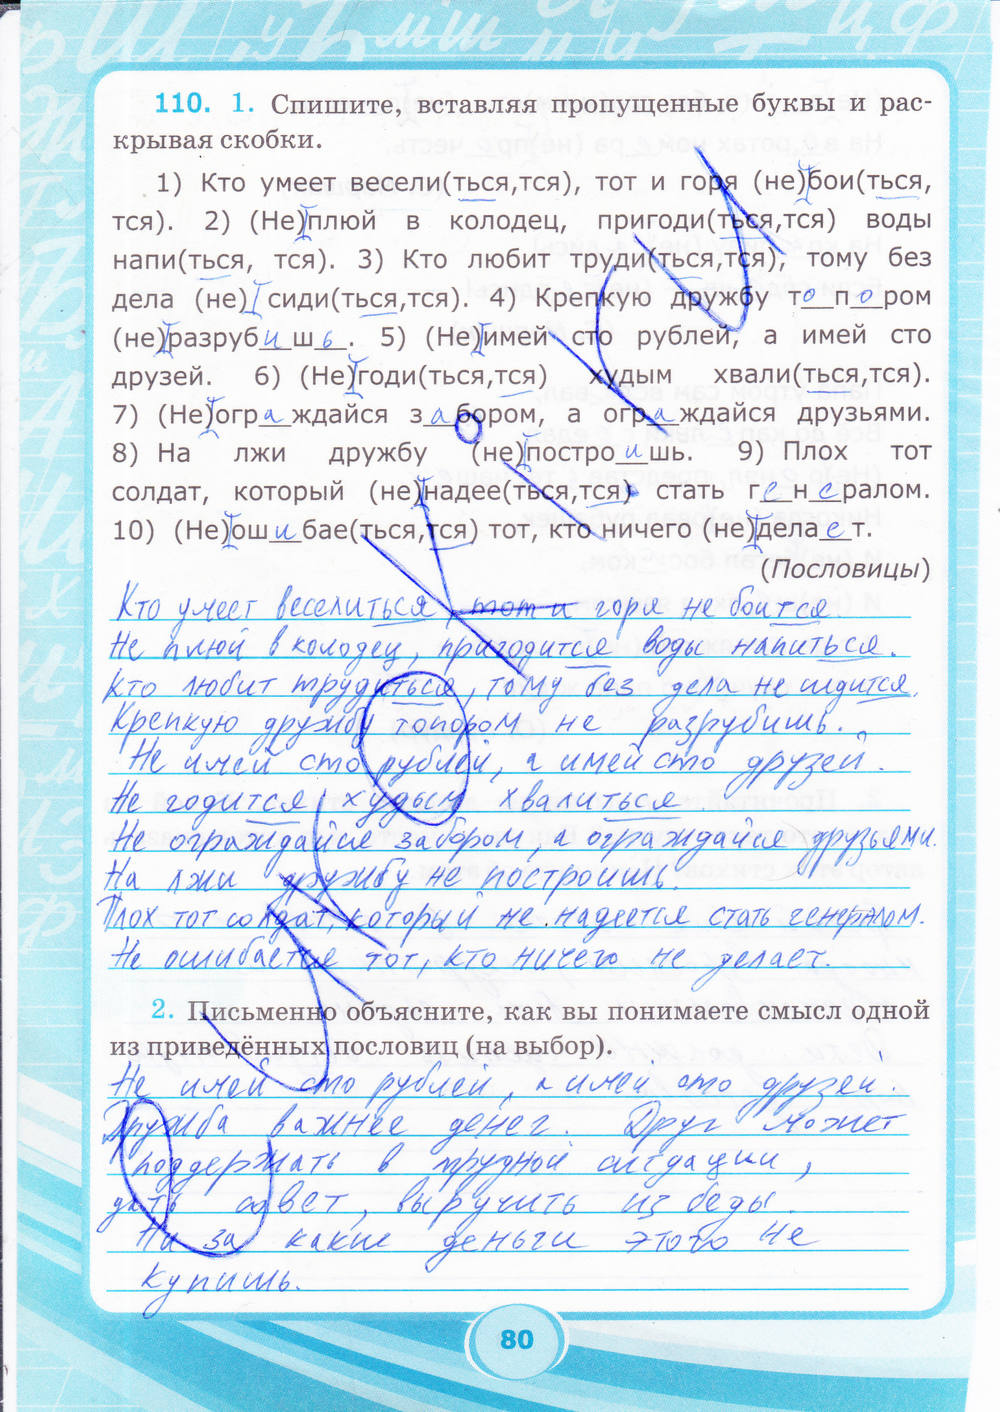 110. 1. Спишите, вставляя пропущенные буквы и рас-
крывая скобки.
1) Кто умеет весели(ться,тся), тот и горя (не)бои(ться,
тся). 2) (Не)плюй в колодец, пригоди(ться,тся) воды
напи(ться, тся). 3) Кто любит труди(ться,тся), тому без
дела (не) сиди(ться,тся). 4) Крепкую дружбу топором
(не)разрубишь. 5) (Не)имей сто рублей, а имей сто
друзей. 6) (Не)годи(ться,тся) худым хвали(ться,тся).
7) (Не)ограждайся забором, а ограждайся друзьями.
8) На лжи дружбу (не)построишь. 9) Плох тот
солдат, который (не)надее(ться,тся) стать генералом.
10) (Не)ошибае(ться,тся) тот, кто ничего (не)делает.
(Пословицы)
Кто умеет веселиться, тот и горя не боится.
Не плюй в колодец, пригодится воды напиться.
Кто любит трудиться, тому без дела не сидится.
Крепкую дружбу топором не разрубишь.
Не имей сто рублей, а имей сто друзей.
Не годится худым хвалиться
Не ограждайся забором, а ограждайся друзьями.
На лжи дружбу не построишь.
Плох тот солдат, который не надеется стать генералом.
Не ошибается тот, кто ничего не делает.
2. Письменно объясните, как вы понимаете смысл одной
из приведённых пословиц (на выбор).
Не имей сто рублей, а имей сто друзей.
Дружба важнее денег. Друг может
поддержать в трудной ситуации,
дать совет, выручить из беды.
Ни за какие деньги этого не
купишь.
80